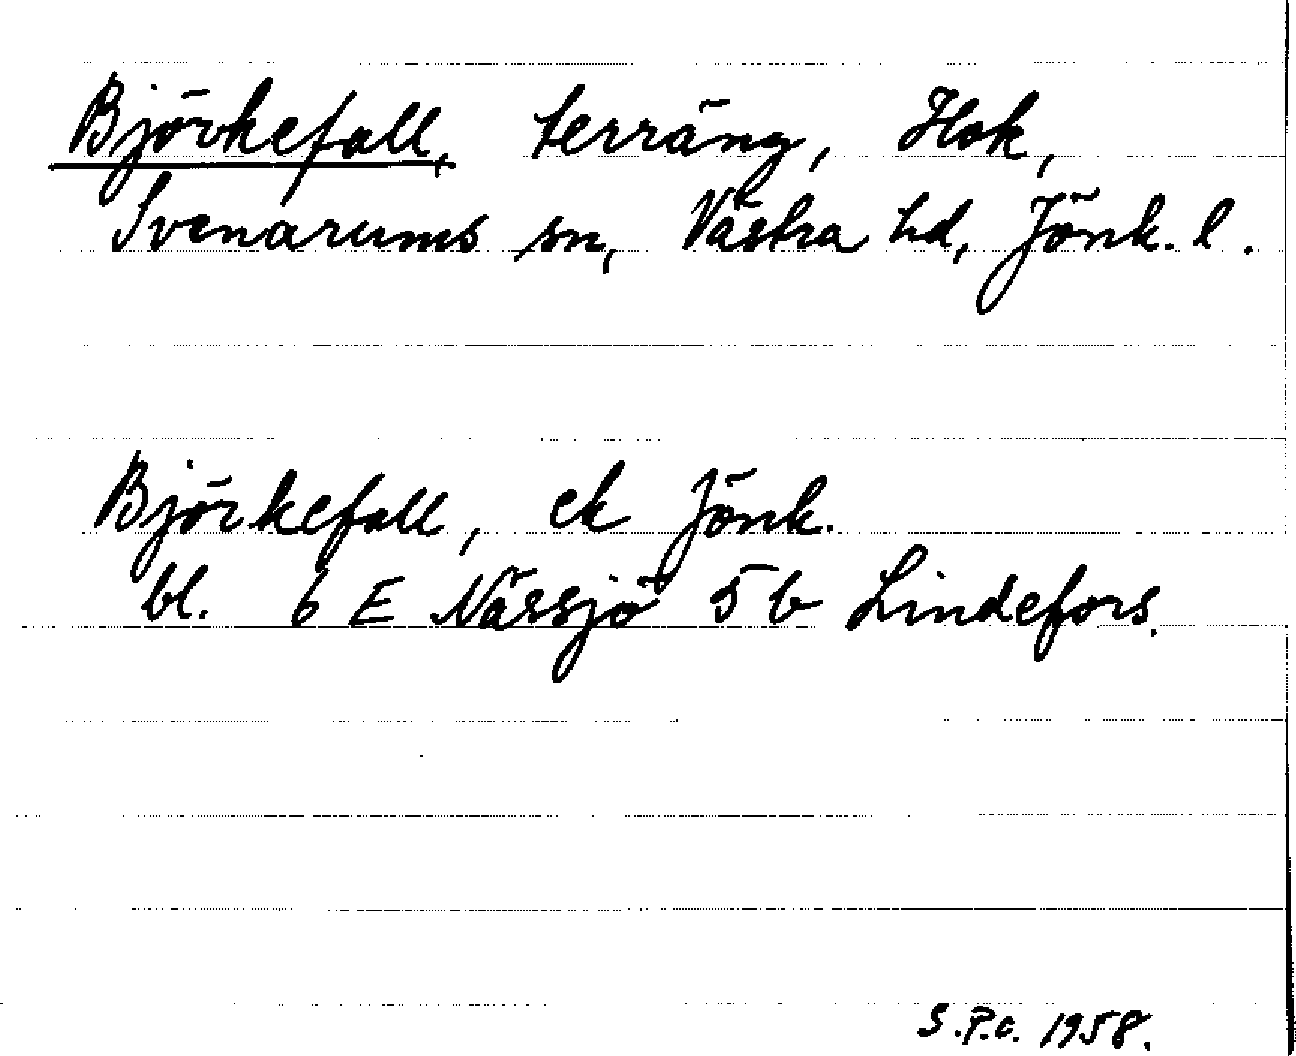 Björkefall, terräng, Hok,
Svenarums sn, Västra hd, Jönk. l.
Björkefall, ek Jönk.
bl. 6 E Nässjö 5 b Lindefors.
S.P.C. 1958.